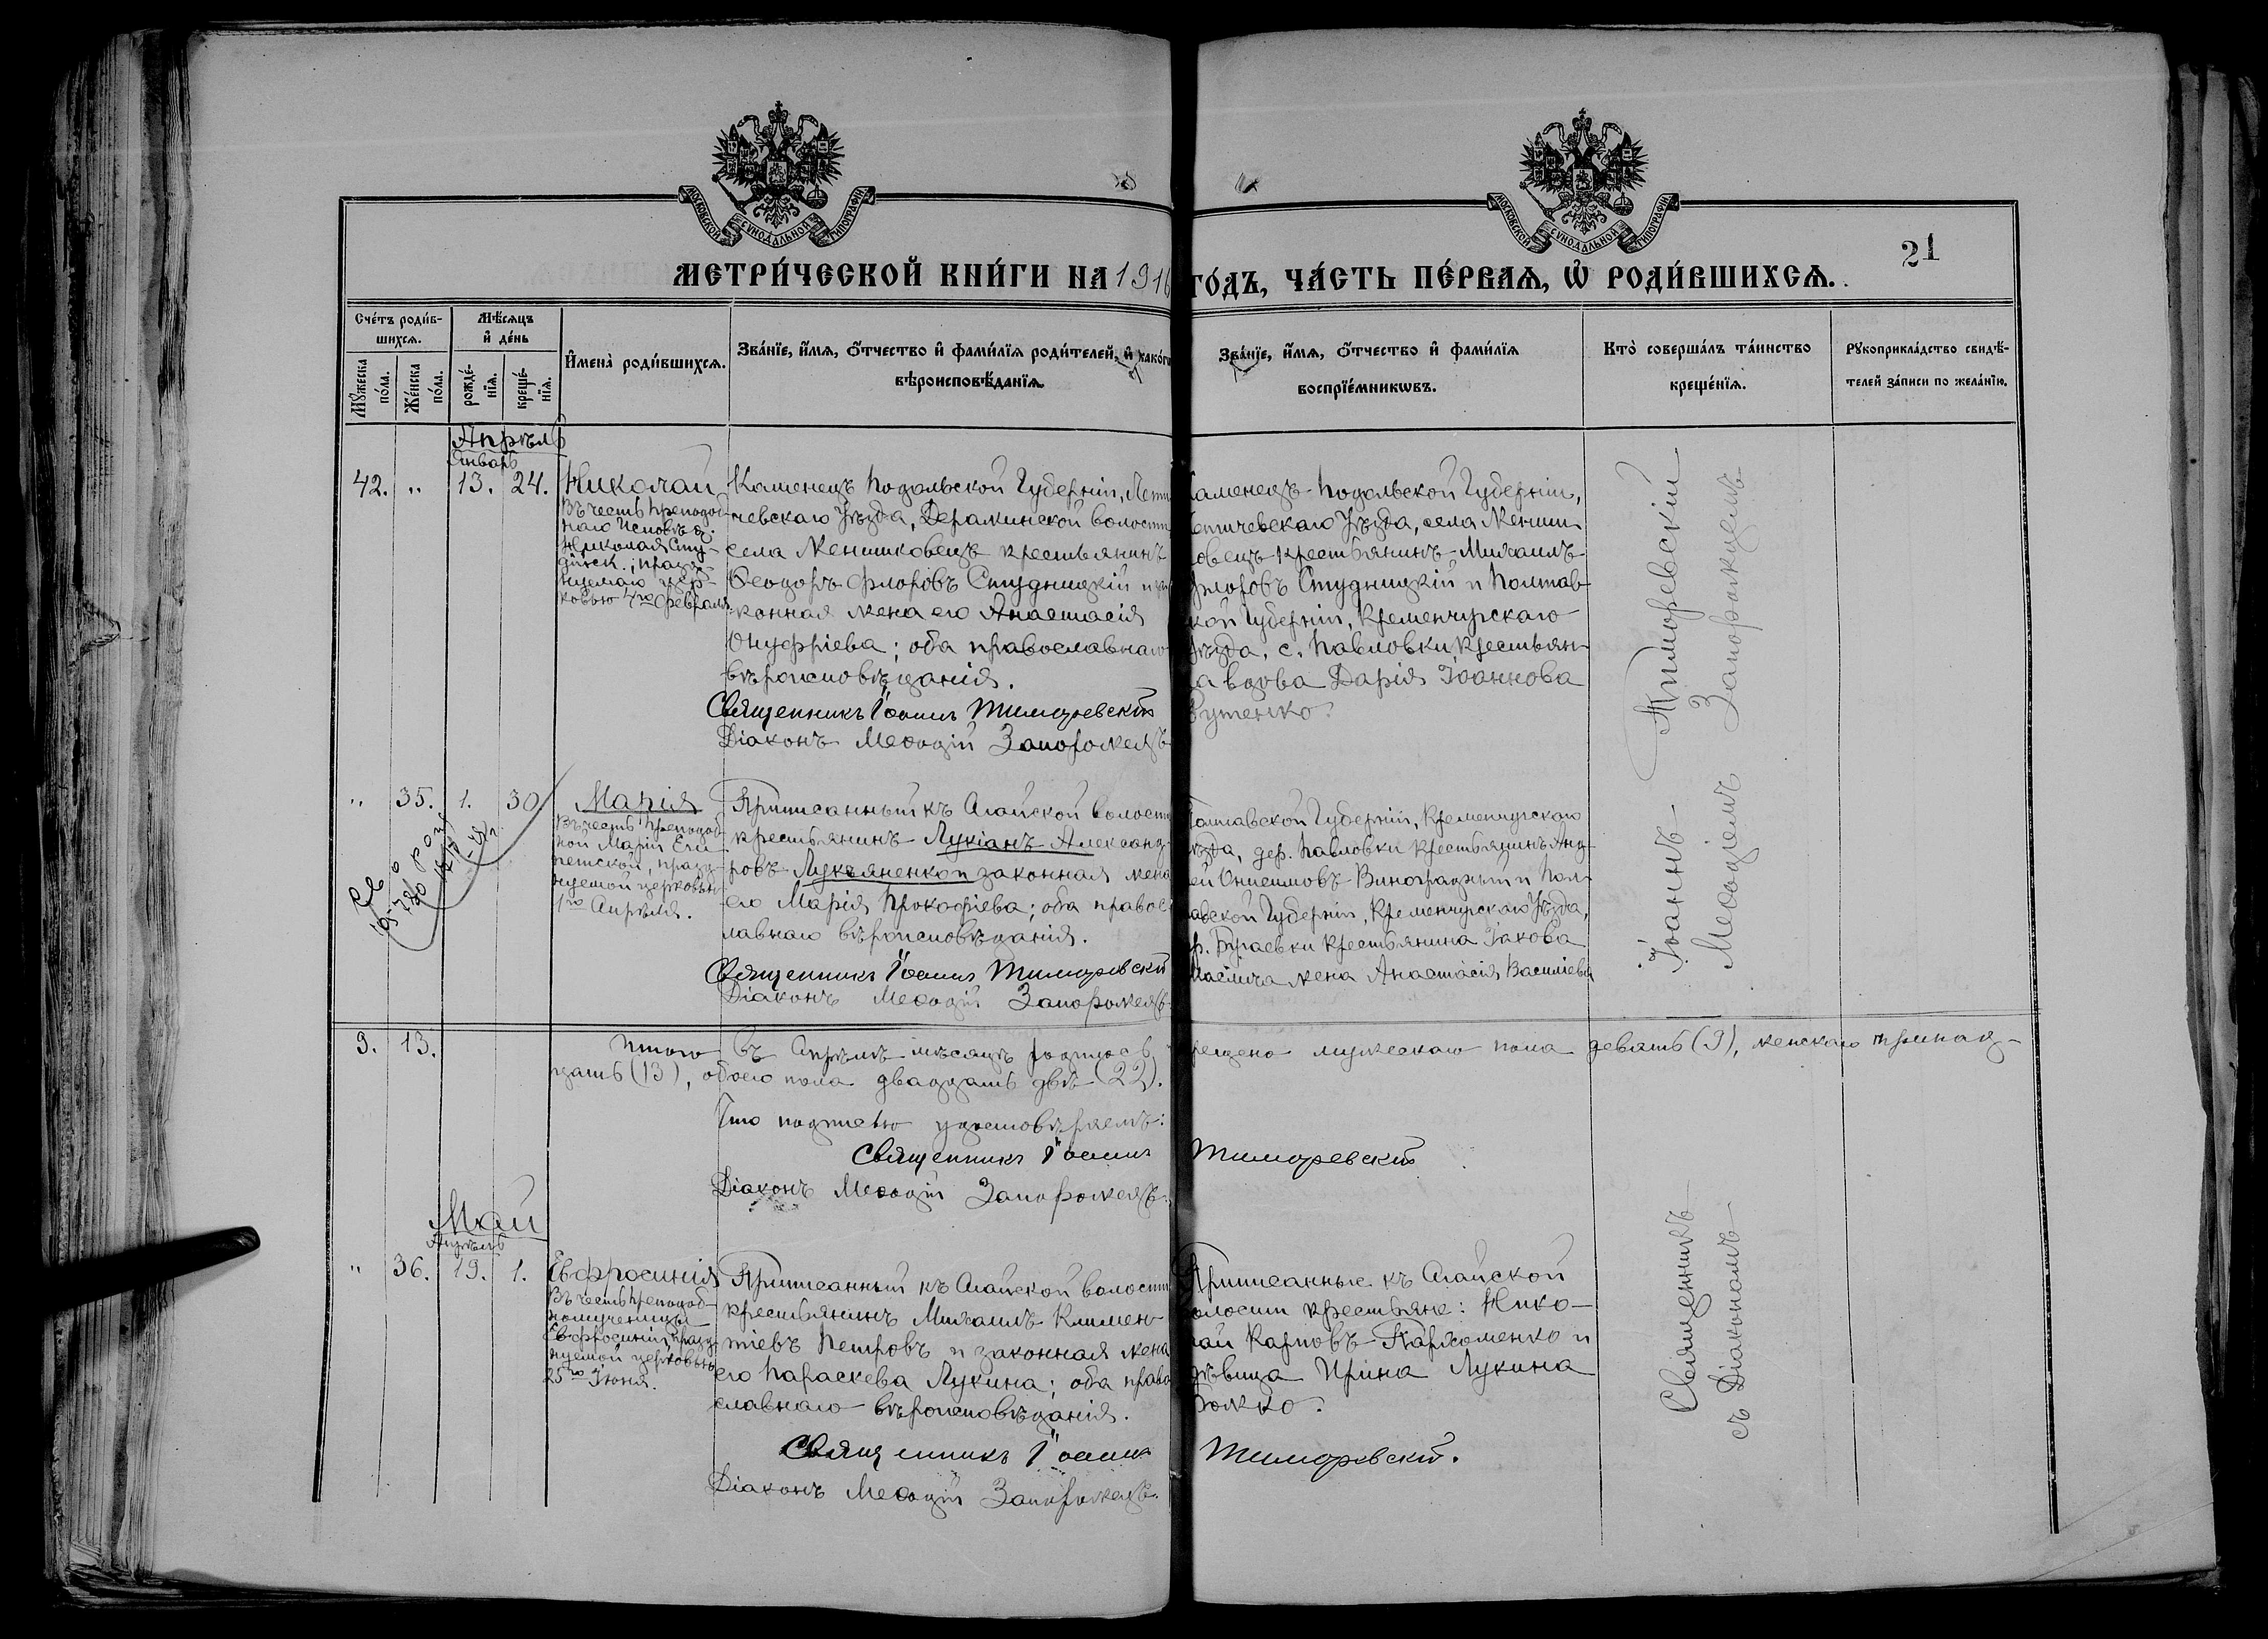 МОСКОВСКОЙ СУНОДАЛЬНОЙ ТИПОГРАФІИ
МОСКОВСКОЙ СУНОДАЛЬНОЙ ТИПОГРАФІИ
21
МЕТРИ́ЧЕСКОЙ КНИ́ГИ НА 1916
ГО́ДЪ, ЧА́СТЬ ПЕ́РВАѦ, Ѡ҆ РОДИ́ВШИХСѦ.
Сче́тъ роди́в-
шихсѧ.
Мꙋ́жеска по́ла.
Же́нска по́ла.
Мѣ́сѧцъ
и҆ де́нь
рожде́-
нїѧ.
креще́-
нїѧ.
И҆мена̀ роди́вшихсѧ.
Зва́нїе, и҆́мѧ, ѻ҆́тчество и҆ фами́лїѧ роди́телей, и҆ како́гѡ
вѣроисповѣ́данїѧ.
Зва́нїе, и҆́мѧ, ѻ҆́тчество и҆ фами́лїѧ
воспрїе́мникѡвъ.
Кто̀ соверша́лъ та́инство
креще́нїѧ.
Рꙋкоприкла́дство свидѣ́-
телей за́писи по жела́нїю.
Апрѣль
Январь
42. " 13. 24.
Николай
Въ честь преподоб-
наго Исповѣд.
Николая Сту-
дійск., празд-
нуемаго цер-
ковью 4го февраля
Каменецъ Подольской Губерніи, Лети
чевскаго Уѣзда, Деражнинской волости
села Менишковецъ крестьянинъ
Ѳеодоръ Флоровъ Студницкій и за
конная жена его Анастасія
Онуфріева; оба православнаго
вѣроисповѣданія.
Священникъ Іоаннъ Тимоѳеевскій
Діаконъ Меѳодій Запорожецъ
Каменецъ-Подольской Губерніи,
Летичевскаго Уѣзда, села Мениш
ковецъ крестьянинъ Михаилъ
Флоровъ Студницкій и Полтав
кой Губерніи, Кременчугскаго
Уѣзда, с. Павловки, крестьян
ка вдова Дарія Іоаннова
Іоаннъ Тимоѳеевскій
Меѳодіемъ Запорожцемъ
" 35. 1. 30
Марія
Въ честь преподоб-
ной Маріи Еги
петской, празд-
нуемой церковью
1го Апрѣля.
Приписанный къ Агайской волости
крестьянинъ Лукіанъ Александ-
ровъ Лукьяненко и законная жена
его Марія Прокофіева; оба правос
лавнаго вѣроисповѣданія.
Священникъ Іоаннъ Тимоѳеевскій
Діаконъ Меѳодій Запорожецъ
Полтавской Губерніи, Кременчугскаго
Уѣзда, дер. Павловки крестьянинъ Анд
рей Онисимовъ Виноградный и Пол-
тавской Губерніи, Кременчугскаго Уѣзда,
др. Бугаевки крестьянина Іакова
жена Анастасія Василіева
9. 13.
Итого въ Апрѣлѣ мѣсяцѣ родилось
крещено мужескаго пола девять (9), женскаго тринад-
цать (13), обоего пола двадцать два (22).
Что подписью удостовѣряемъ:
Священникъ Іоаннъ Тимоѳеевскій
Діаконъ Меѳодій Запорожецъ.
Май
Апрѣль
" 36. 19. 1.
Евфросинія
Въ честь преподоб-
номученицы
Евфросиніи, празд
нуемой церковью
25го Іюня.
Приписанный къ Агайской волости
крестьянинъ Михаилъ Климен
тіевъ Петровъ и законная жена
его Параскева Лукина; оба право
славнаго вѣроисповѣданія.
Священникъ Іоаннъ Тимоѳеевскій.
Діаконъ Меѳодій Запорожецъ.
Приписанные къ Агайской
волости крестьяне: Нико-
лай Карповъ Пархоменко и
дѣвица Ирина Лукина
Божко.
Священникъ
съ Діакономъ